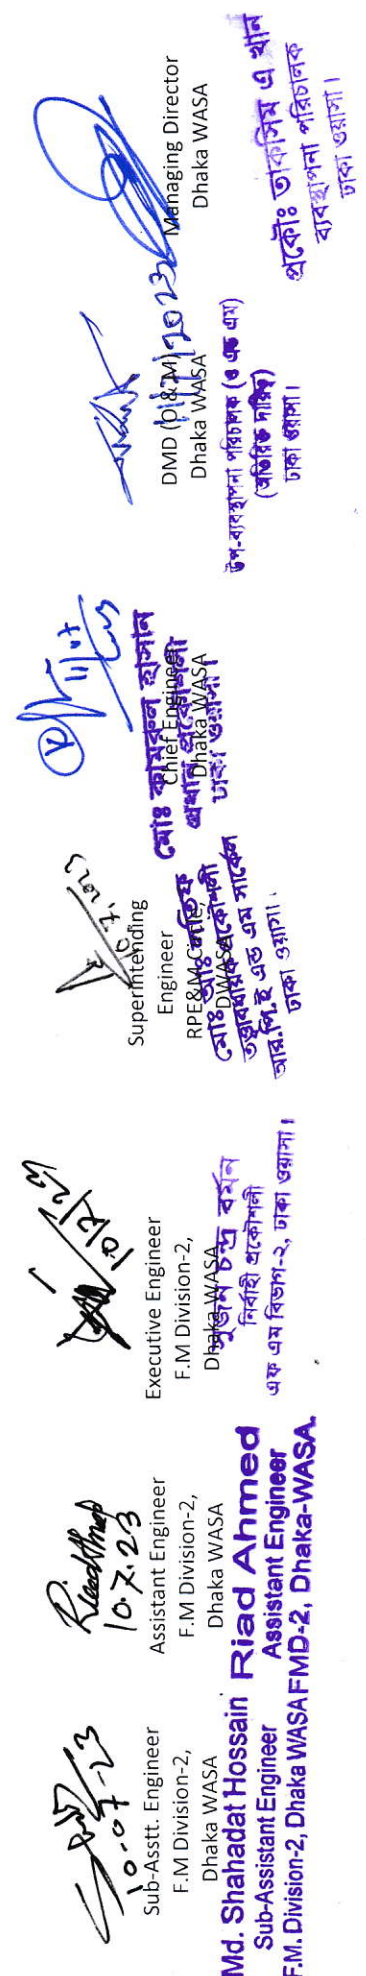 10-07-23
Sub-Asstt. Engineer
F.M Division-2,
Dhaka WASA
Md. Shahadat Hossain
Sub-Assistant Engineer
F.M. Division-2, Dhaka WASA
10.7.23
Assistant Engineer
F.M Division-2,
Dhaka WASA
Riad Ahmed
Assistant Engineer
FMD-2, Dhaka-WASA.
10/7/23
Executive Engineer
F.M Division-2,
Dhaka WASA
সুজন চন্দ্র বর্মন
নির্বাহী প্রকৌশলী
এফ এম বিভাগ-২, ঢাকা ওয়াসা।
Superintending
Engineer
RPE&M Circle,
DWASA
মোঃ আঃ লতিফ
তত্ত্বাবধায়ক প্রকৌশলী
আর.পি.ই এন্ড এম সার্কেল
ঢাকা ওয়াসা।
Chief Engineer
Dhaka WASA
মোঃ কামরুল হাসান
প্রধান প্রকৌশলী
ঢাকা ওয়াসা।
DMD (O &M)
Dhaka WASA
উপ-ব্যবস্থাপনা পরিচালক (ও এন্ড এম)
(অতিরিক্ত দায়িত্ব)
ঢাকা ওয়াসা।
Managing Director
Dhaka WASA
প্রকৌঃ তাকসিম এ খান
ব্যবস্থাপনা পরিচালক
ঢাকা ওয়াসা।